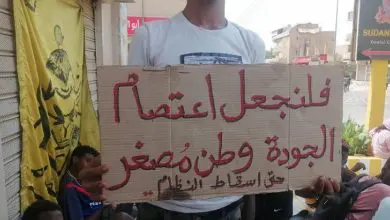 فلنجعل اعتصام
الجودة وطن مُصغر
حتى اسقاط النظام
SUDAN